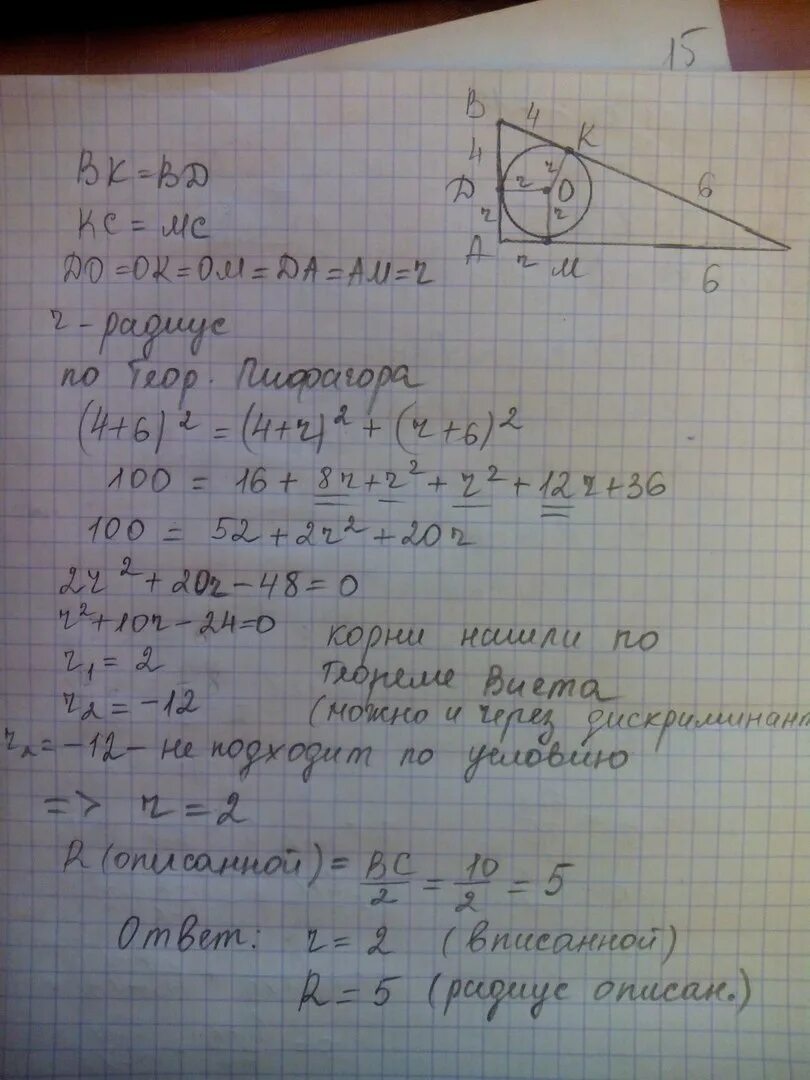 15
B 4 K
4 r 6
D r O
r r
A r M 6
BK = BD
KC = MC
DO = OK = OM = DA = AM = r
r - радиус
по Теор. Пифагора
(4+6)² = (4+r)² + (r+6)²
100 = 16 + 8r + r² + r² + 12r + 36
100 = 52 + 2r² + 20r
2r² + 20r - 48 = 0
r² + 10r - 24 = 0 корни нашли по
r₁ = 2 Теореме Виета
r₂ = -12 (можно и через дискриминант
r₂ = -12 - не подходит по условию
=> r = 2
R (описанной) = BC/2 = 10/2 = 5
Ответ: r = 2 (вписанной)
R = 5 (радиус описан.)